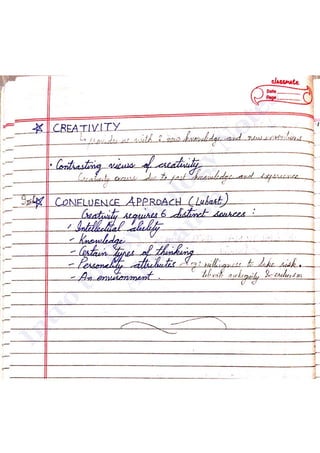 classmate
Date
Page
☆ CREATIVITY
↳ provides us with new knowledge and new inventions
• Contrasting views of creativity
Creativity occurs due to past knowledge and experience
☆ CONFLUENCE APPROACH (Lubart)
Creativity requires 6 distinct sources :
- Intellectual ability
- Knowledge
- Certain types of thinking
- Personality attributes eg: willingness to take risk,
- An environment. tolerate ambiguity &